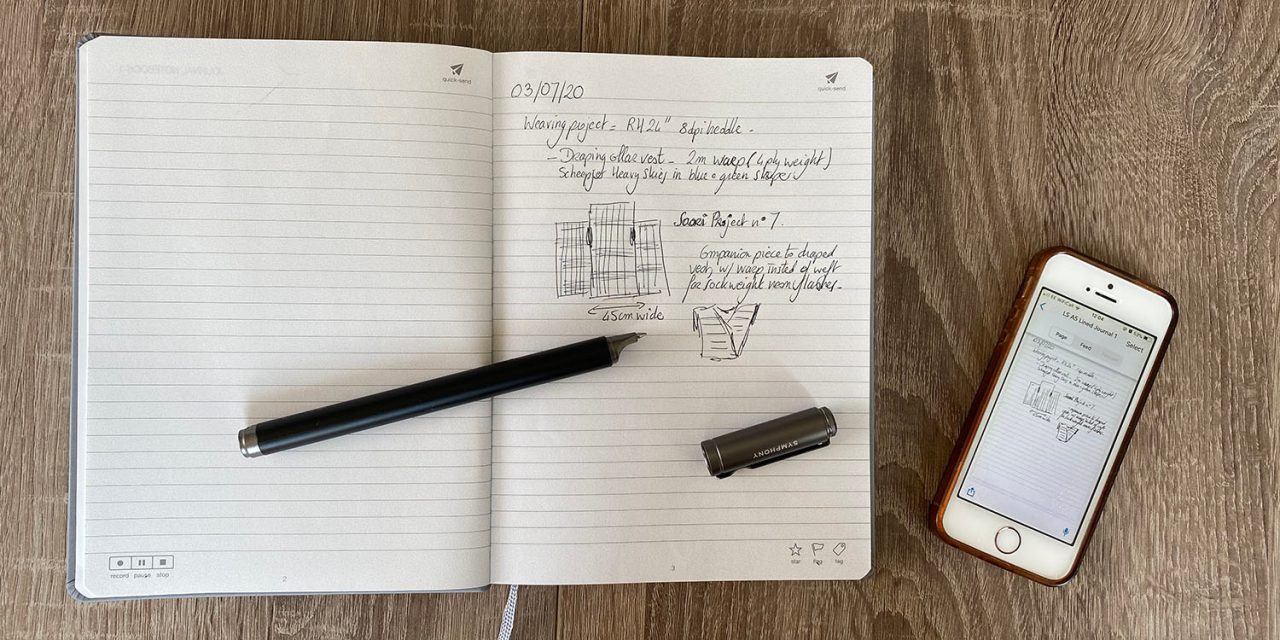 quick-send
record pause stop
2
quick-send
03/07/20
Weaving project = RH 24" 8dpi heddle -
- Draping collar vest - 2m warp (4 ply weight)
Scheepjes Heavy Skies in blue & green shapes
Saori Project n° 7.
Companion piece to draped
vest, w/ warp insted of weft
for sockweight
45cm wide
SYMPHONY
star flag tag
3
EE WiFiCall 12:04 53%
LS A5 Lined Journal 1
Page Feed Select